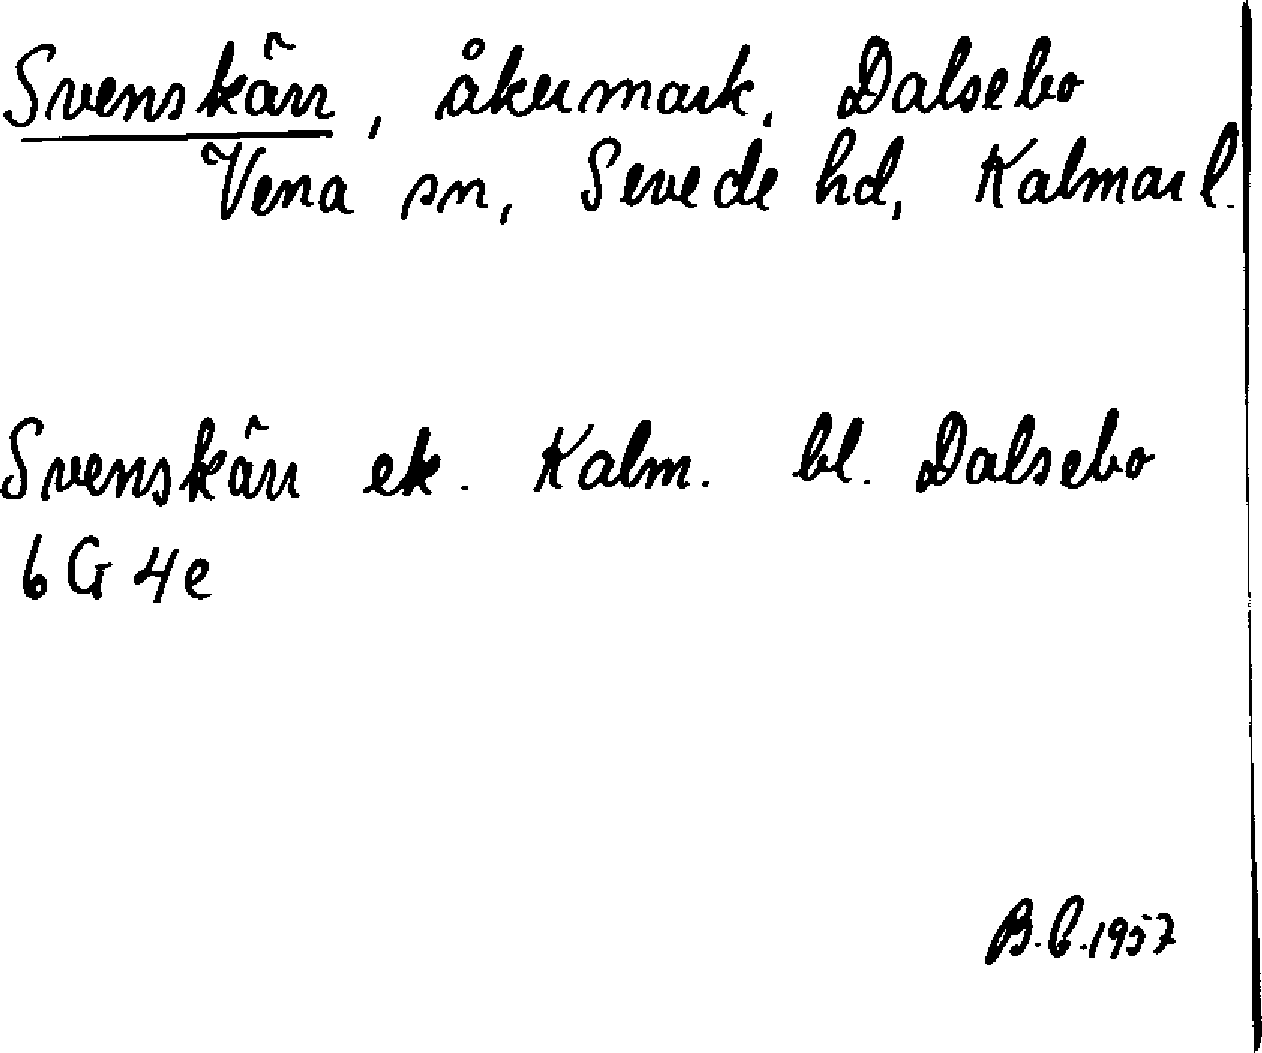 Svenskärr, åkermark, Dalsebo
Vena sn, Sevede hd, Kalmar l.
Svenskärr ek. Kalm. bl. Dalsebo
6G 4e
B.C. 1957